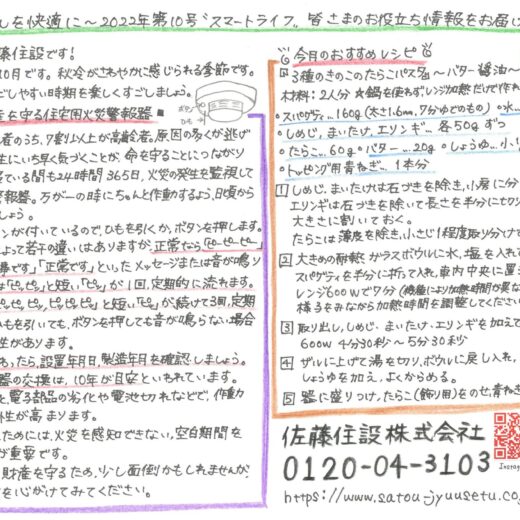 しを快適に～2022年第10号〝スマートライフ〟皆さまのお役立ち情報をお届け
藤住設です!
10月です。秋冷がさわやかに感じられる季節です。
ごしやすい時期を楽しくすごしましょう。
を守る住宅用火災警報器
ボタン
ひも
者のうち、7割以上が高齢者。原因の多くが逃げ
生にいち早く気づくことが、命を守ることにつながり
ている間も24時間365日、火災の発生を監視して
警報器。万が一の時にちゃんと作動するよう、日頃から
しょう。
ンが付いているので、ひもを引くか、ボタンを押します。
よって若干の違いはありますが、正常なら「ピーピーピー」
「正常です」といったメッセージまたは音が鳴り
「ピッ」と短い「ピッ」が1回、定期的に流れます。
ピッピッ、ピッピッピッ」と短い「ピッ」が続けて3回、定期
ひもを引いても、ボタンを押しても音が鳴らない場合
性があります。
ったら、設置年月日、製造年月を確認しましょう。
器の交換は、10年が目安といわれています。
と、電子部品の劣化や電池切れなどで、作動
性が高まります。
ためには、火災を感知できない、空白期間を
が重要です。
財産を守るため、少し面倒かもしれませんが、
を心がけてみてください。
今月のおすすめレシピ
3種のきのこのたらこパスタ～バター醤油～
材料:2人分 ★鍋を使わず…レンジ加熱だけで作れ
・スパゲティ…160g(太さ1.6mm、7分ゆでのもの)・水
・しめじ、まいたけ、エリンギ…各50gずつ
・たらこ…60g・バター…20g・しょうゆ…小
・トッピング用青ねぎ…1本分
1 しめじ、まいたけは石づきを除き、小房に分
エリンギは石づきを除いて長さを半分に切り
大きさに割いておく。
たらこは薄皮を除き、小さじ1程度取り分けて
2 大きめの耐熱ガラスボウルに水、塩を入れ
スパゲティを半分に折って入れ、庫内中央に置き
レンジ600Wで7分(機種により加熱時間が異な
様子をみながら加熱時間を調整してください
3 取り出し、しめじ・まいたけ・エリンギを加えて
600W 4分30秒～5分30秒
4 ザルに上げて湯を切り、ボウルに戻し入れ、
しょうゆを加え、よくからめる。
5 器に盛りつけ、たらこ(飾り用)をのせ、青ねぎ
佐藤住設株式会社
0120-04-3103
Instag
https://www.satou-jyuusetu.co